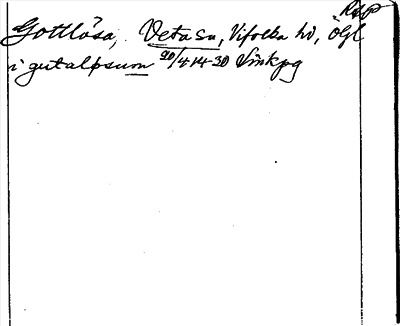 Rsp
Gottlösa, Veta sn, Vifolka hd, Ögl
i gutalpsum 20/4 1430 Linkpg